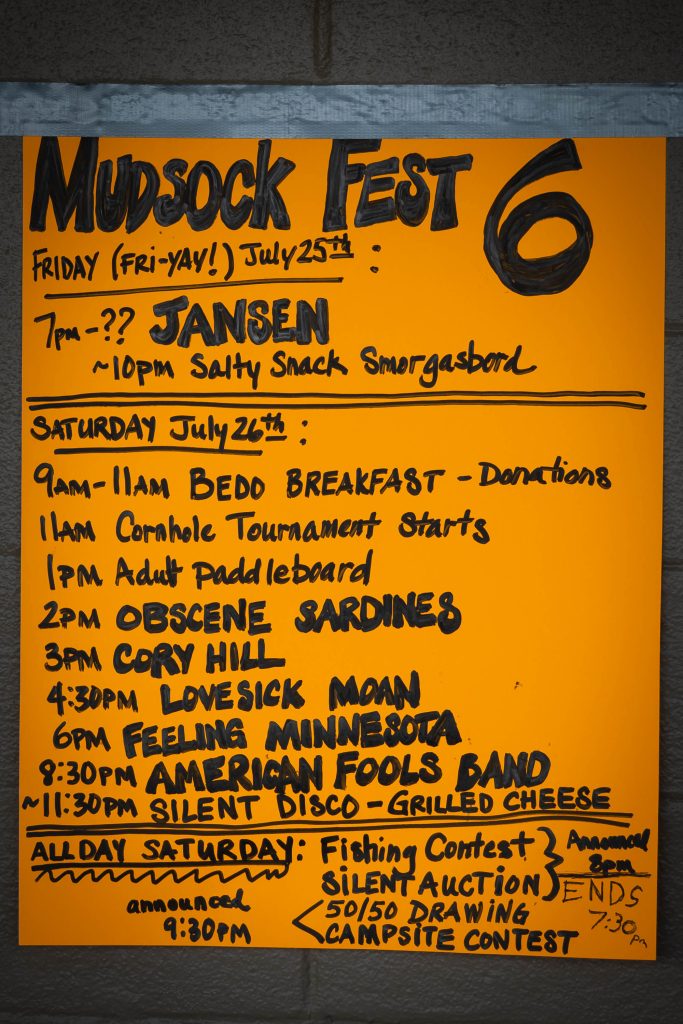 MUDSOCK FEST 6
FRIDAY (FRI-YAY!) July 25th :
7pm - ?? JANSEN
~10pm Salty Snack Smorgasbord
SATURDAY July 26th :
9AM-11AM BEDO BREAKFAST - Donations
11AM Cornhole Tournament Starts
1PM Adult Paddleboard
2PM OBSCENE SARDINES
3PM CORY HILL
4:30PM LOVESICK MOAN
6PM FEELING MINNESOTA
8:30PM AMERICAN FOOLS BAND
~11:30PM SILENT DISCO - GRILLED CHEESE
ALL DAY SATURDAY: Fishing Contest
SILENT AUCTION
Announced
8pm
ENDS
7:30
pm
announced
9:30PM
50/50 DRAWING
CAMPSITE CONTEST